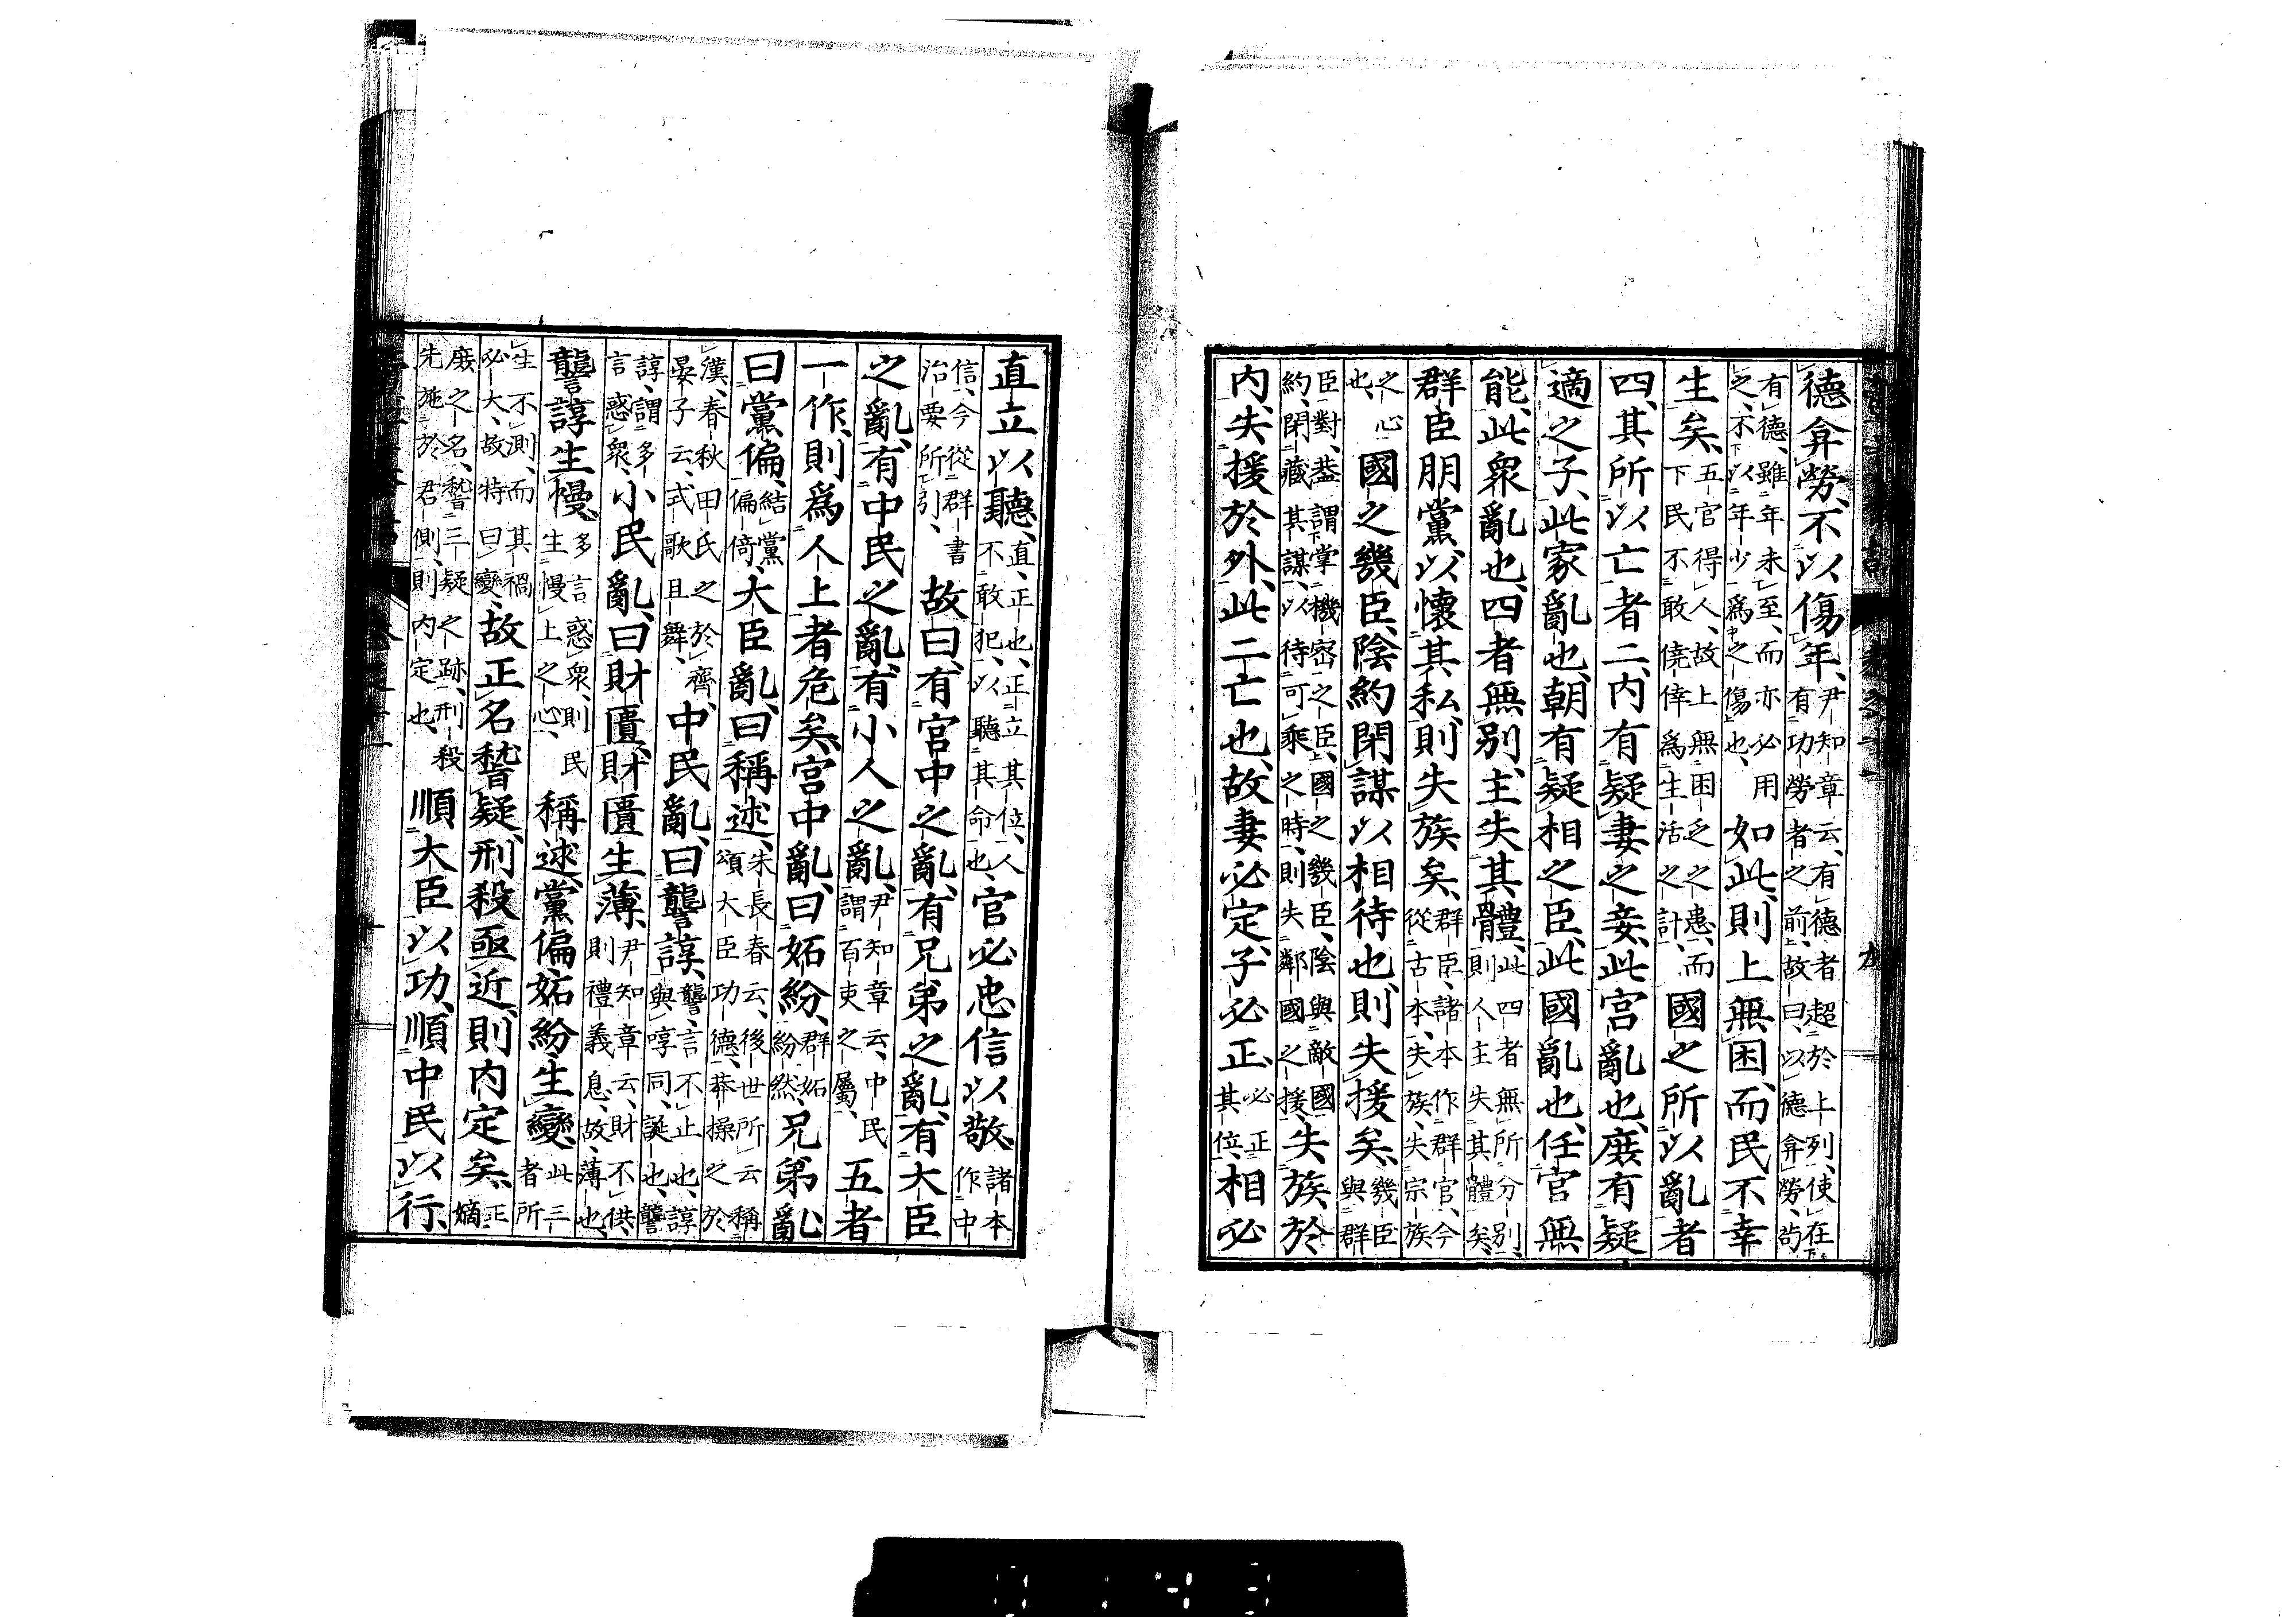 德弇勞、不以傷年、尹知章云、有德者超於上列、使在有功勞者之前、故曰、以德弇勞、苟
有德、雖年未至、而亦必用之、不以年少爲之傷也、如此、則上無困、而民不幸
生矣、五官得人、故上無困乏之患、而下民不敢僥倖爲生活之計、國之所以亂者
四、其所以亡者二、內有疑妻之妾、此宮亂也、庶有疑
適之子、此家亂也、朝有疑相之臣、此國亂也、任官無
能、此衆亂也、四者無別、主失其體、此四者無所分別、則人主失其體矣、
群臣朋黨、以懷其私、則失族矣、群臣、諸本作群官、今從古本、失族、失宗族
也、之心國之幾臣、陰約閉謀以相待也、則失援矣、幾臣與群
臣對、蓋謂掌機密之臣、國之幾臣、陰與敵國約、閉藏其謀、以待可乘之時、則失鄰國之援、失族於
內、失援於外、此二亡也、故妻必定、子必正、必正其位、相必
直立以聽、直、正也、正立其位、人不敢犯、以聽其命也、官必忠信以敬、諸本作中
信、今從群書治要所引、故曰、有宮中之亂、有兄弟之亂、有大臣
之亂、有中民之亂、有小人之亂、尹知章云、中民謂百吏之屬、五者
一作、則爲人上者危矣、宮中亂、曰妬紛、群妬紛然、兄弟亂
曰黨偏、結黨偏倚、大臣亂、曰稱述、朱長春云、後世所云稱頌大臣功德、莽操之於
漢、春秋田氏之於齊、晏子云、式歌且舞、中民亂、曰讋諄、讋、言不止也、諄與啍同、誕也、讋
諄、謂多言惑衆、小民亂、曰財匱、財匱生薄、尹知章云、財不供、則禮義息、故薄也、
讋諄生慢、多言惑衆、則民生慢上之心、稱述黨偏妬紛生變、此三者所
生不測、而其禍必大、故特曰變、故正名稽疑、刑殺亟近、則內定矣、正嫡
庶之名、稽三疑之跡、刑殺先施於君側、則內定也、順大臣以功、順中民以行、